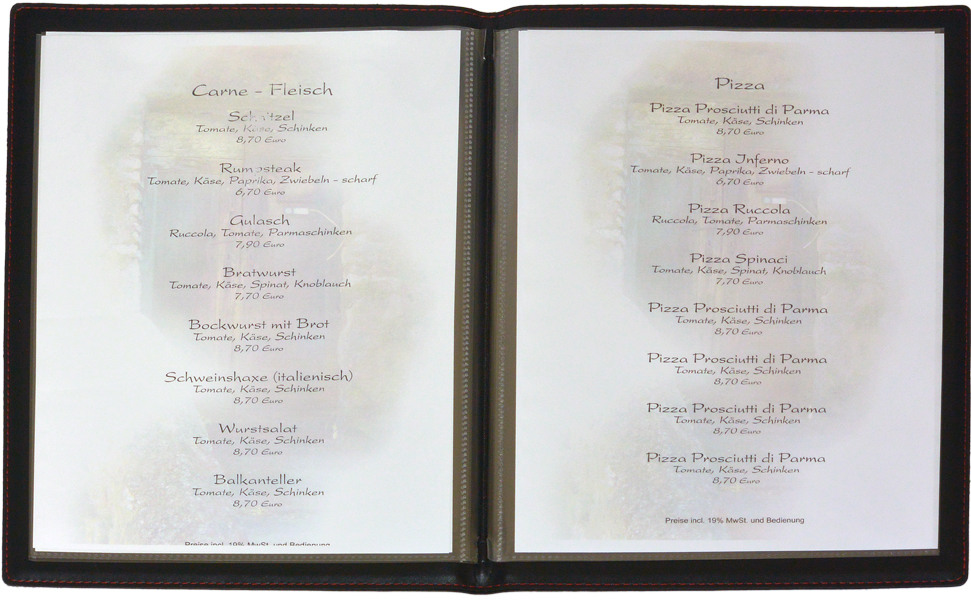 Carne - Fleisch
Schnitzel
Tomate, Käse, Schinken
8,70 Euro
Rumpsteak
Tomate, Käse, Paprika, Zwiebeln - scharf
6,70 Euro
Gulasch
Ruccola, Tomate, Parmaschinken
7,90 Euro
Bratwurst
Tomate, Käse, Spinat, Knoblauch
7,70 Euro
Bockwurst mit Brot
Tomate, Käse, Schinken
8,70 Euro
Schweinshaxe (italienisch)
Tomate, Käse, Schinken
8,70 Euro
Wurstsalat
Tomate, Käse, Schinken
8,70 Euro
Balkanteller
Tomate, Käse, Schinken
8,70 Euro
Preise incl. 19% MwSt. und Bedienung
Pizza
Pizza Prosciutti di Parma
Tomate, Käse, Schinken
8,70 Euro
Pizza Inferno
Tomate, Käse, Paprika, Zwiebeln - scharf
6,70 Euro
Pizza Ruccola
Ruccola, Tomate, Parmaschinken
7,90 Euro
Pizza Spinaci
Tomate, Käse, Spinat, Knoblauch
7,70 Euro
Pizza Prosciutti di Parma
Tomate, Käse, Schinken
8,70 Euro
Pizza Prosciutti di Parma
Tomate, Käse, Schinken
8,70 Euro
Pizza Prosciutti di Parma
Tomate, Käse, Schinken
8,70 Euro
Pizza Prosciutti di Parma
Tomate, Käse, Schinken
8,70 Euro
Preise incl. 19% MwSt. und Bedienung